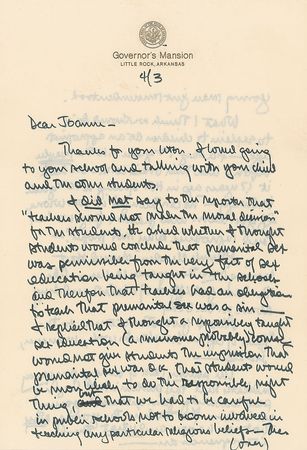 Governor's Mansion
LITTLE ROCK, ARKANSAS
4/3
Dear Joanne -
Thanks for your letter. I loved going
to your school and talking with your child
and the other students.
I did not say to the reporter that
"teachers should not make the moral decision"
for the students. He asked whether I thought
students would conclude that premarital sex
was permissible from the very fact of sex
education being taught in the schools
and therefore that teachers had an obligation
to teach that premarital sex was a sin —
I replied that I thought a responsibly taught
sex education (a misnomer, probably) course
would not give students the impression that
premarital sex was o.k., that students would
be more likely to do the responsible, right
thing; but that we had to be careful
in public schools not to become involved in
teaching any particular religious beliefs - Then
(over)